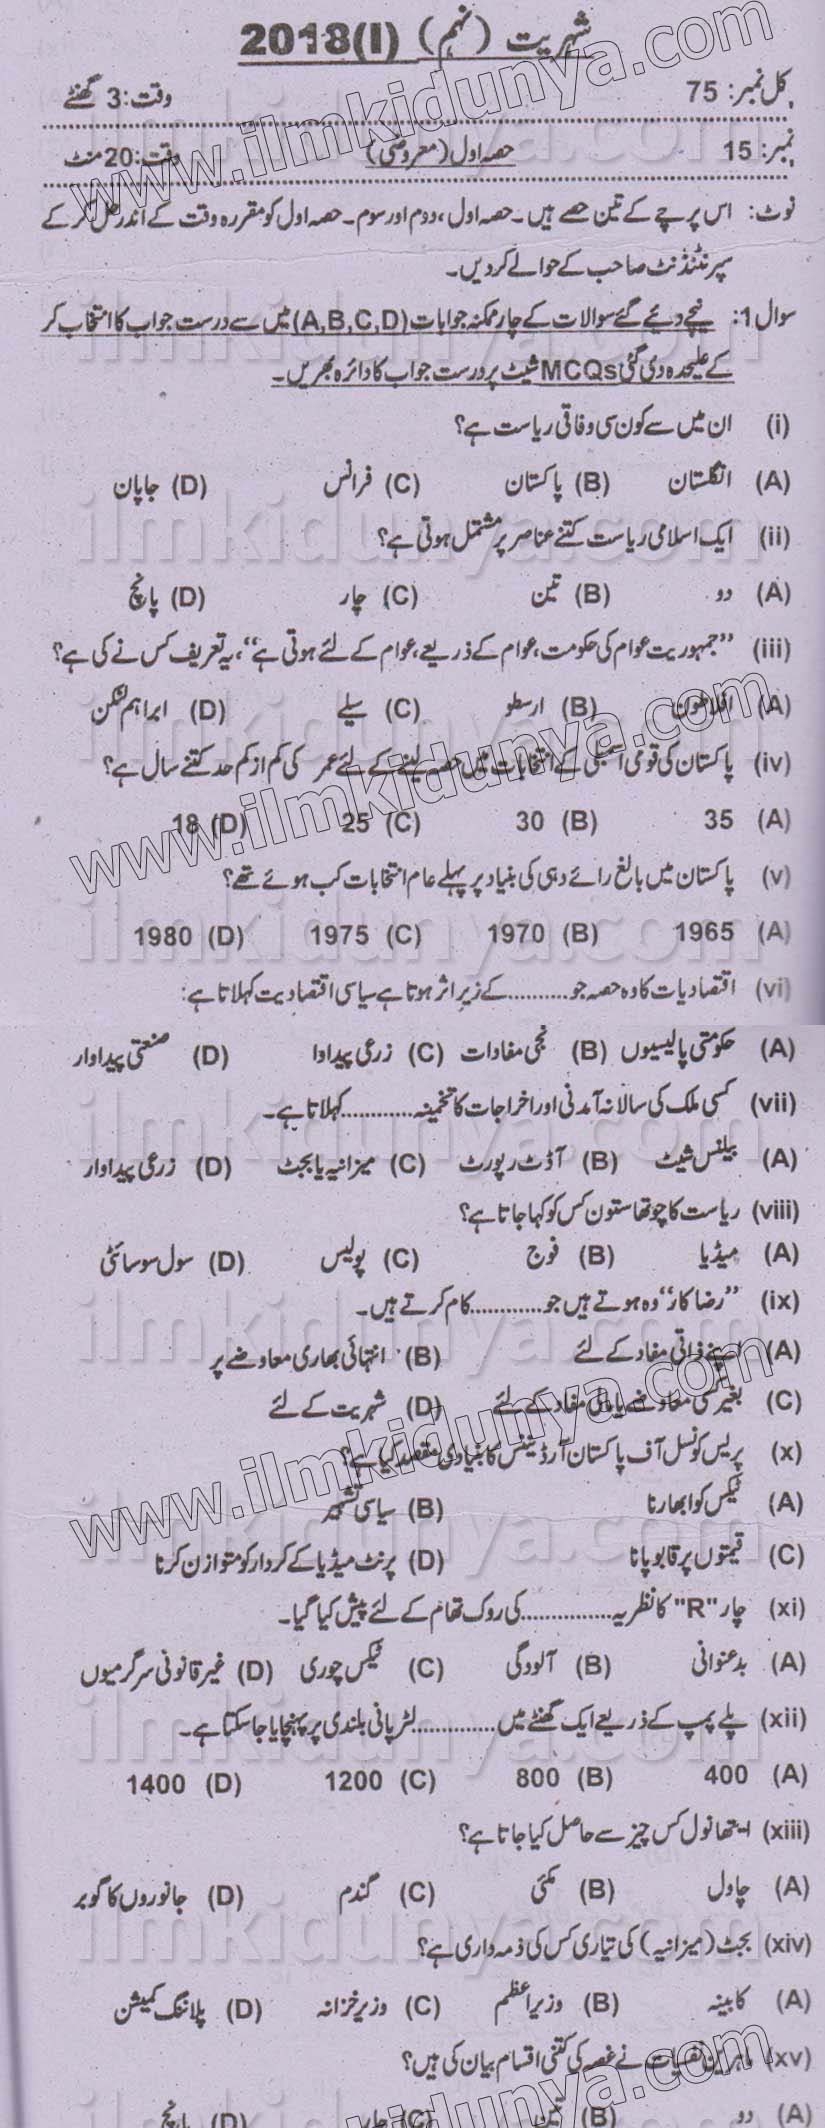 شہریت (نہم) 2018(I)
کل نمبر: 75 وقت: 3 گھنٹے
نمبر: 15 حصہ اول (معروضی) وقت: 20 منٹ
نوٹ: اس پرچے کے تین حصے ہیں۔ حصہ اول، دوم اور سوم۔ حصہ اول کو مقررہ وقت کے اندر حل کر کے
سپرنٹنڈنٹ صاحب کے حوالے کر دیں۔
سوال 1: نیچے دیئے گئے سوالات کے چار ممکنہ جوابات (A,B,C,D) میں سے درست جواب کا انتخاب کر
کے علیحدہ دی گئی MCQs شیٹ پر درست جواب کا دائرہ بھریں۔
(i) ان میں سے کون سی وفاقی ریاست ہے؟
(A) انگلستان (B) پاکستان (C) فرانس (D) جاپان
(ii) ایک اسلامی ریاست کتنے عناصر پر مشتمل ہوتی ہے؟
(A) دو (B) تین (C) چار (D) پانچ
(iii) ”جمہوریت عوام کی حکومت، عوام کے ذریعے، عوام کے لئے ہوتی ہے“، یہ تعریف کس نے کی ہے؟
(A) افلاطون (B) ارسطو (C) سیلے (D) ابراہم لنکن
(iv) پاکستان کی قومی اسمبلی کے انتخابات میں حصہ لینے کے لئے عمر کی کم از کم حد کتنے سال ہے؟
(A) 35 (B) 30 (C) 25 (D) 18
(v) پاکستان میں بالغ رائے دہی کی بنیاد پر پہلے عام انتخابات کب ہوئے تھے؟
(A) 1965 (B) 1970 (C) 1975 (D) 1980
(vi) اقتصادیات کا وہ حصہ جو .......... کے زیر اثر ہوتا ہے سیاسی اقتصادیت کہلاتا ہے:
(A) حکومتی پالیسیوں (B) نجی مفادات (C) زرعی پیداوا (D) صنعتی پیداوار
(vii) کسی ملک کی سالانہ آمدنی اور اخراجات کا تخمینہ ............ کہلاتا ہے۔
(A) بیلنس شیٹ (B) آڈٹ رپورٹ (C) میزانیہ یا بجٹ (D) زرعی پیداوار
(viii) ریاست کا چوتھا ستون کس کو کہا جاتا ہے؟
(A) میڈیا (B) فوج (C) پولیس (D) سول سوسائٹی
(ix) ”رضا کار“ وہ ہوتے ہیں جو ............ کام کرتے ہیں۔
(A) اپنے ذاتی مفاد کے لئے (B) انتہائی بھاری معاوضے پر
(C) بغیر کسی معاوضے یا مالی مفاد کے لئے (D) شہریت کے لئے
(x) پریس کونسل آف پاکستان آرڈیننس کا بنیادی مقصد کیا ہے؟
(A) ٹیکس کو ابھارنا (B) سیاسی تشہیر
(C) قیمتوں پر قابو پانا (D) پرنٹ میڈیا کے کردار کو متوازن کرنا
(xi) چار "R" کا نظریہ ............... کی روک تھام کے لئے پیش کیا گیا۔
(A) بدعنوانی (B) آلودگی (C) ٹیکس چوری (D) غیر قانونی سرگرمیوں
(xii) پلے پمپ کے ذریعے ایک گھنٹے میں .............. لٹر پانی بلندی پر پہنچایا جا سکتا ہے۔
(A) 400 (B) 800 (C) 1200 (D) 1400
(xiii) ایتھانول کس چیز سے حاصل کیا جاتا ہے؟
(A) چاول (B) مکئی (C) گندم (D) جانوروں کا گوبر
(xiv) بجٹ (میزانیہ) کی تیاری کس کی ذمہ داری ہے؟
(A) کابینہ (B) وزیر اعظم (C) وزیر خزانہ (D) پلاننگ کمیشن
(xv) ماہرین نفسیات نے غصہ کی کتنی اقسام بیان کی ہیں؟
(A) دو (B) تین (C) چار (D) پانچ
www.ilmkidunya.com
ilmkidunya.com
ilmkidunya.com
www.ilmkidunya.com
ilmkidunya.com
ilmkidunya.com
ilmkidunya.com
www.ilmkidunya.com
ilmkidunya.com
ilmkidunya.com
ilmkidunya.com
www.ilmkidunya.com
ilmkidunya.com